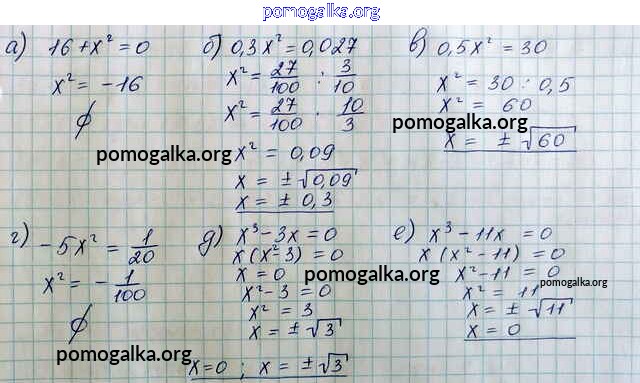 pomogalka.org
а) 16 + x² = 0
x² = -16
∅
б) 0,3x² = 0,027
x² = 27/100 : 3/10
x² = 27/100 · 10/3
x² = 0,09
x = ±√0,09
x = ± 0,3
в) 0,5x² = 30
x² = 30 : 0,5
x² = 60
x = ±√60
pomogalka.org
pomogalka.org
г) -5x² = 1/20
x² = -1/100
∅
д) x³ - 3x = 0
x(x² - 3) = 0
x = 0
x² - 3 = 0
x² = 3
x = ±√3
x = 0 ; x = ±√3
е) x³ - 11x = 0
x(x² - 11) = 0
x² - 11 = 0
x² = 11
x = ±√11
x = 0
pomogalka.org
pomogalka.org
pomogalka.org